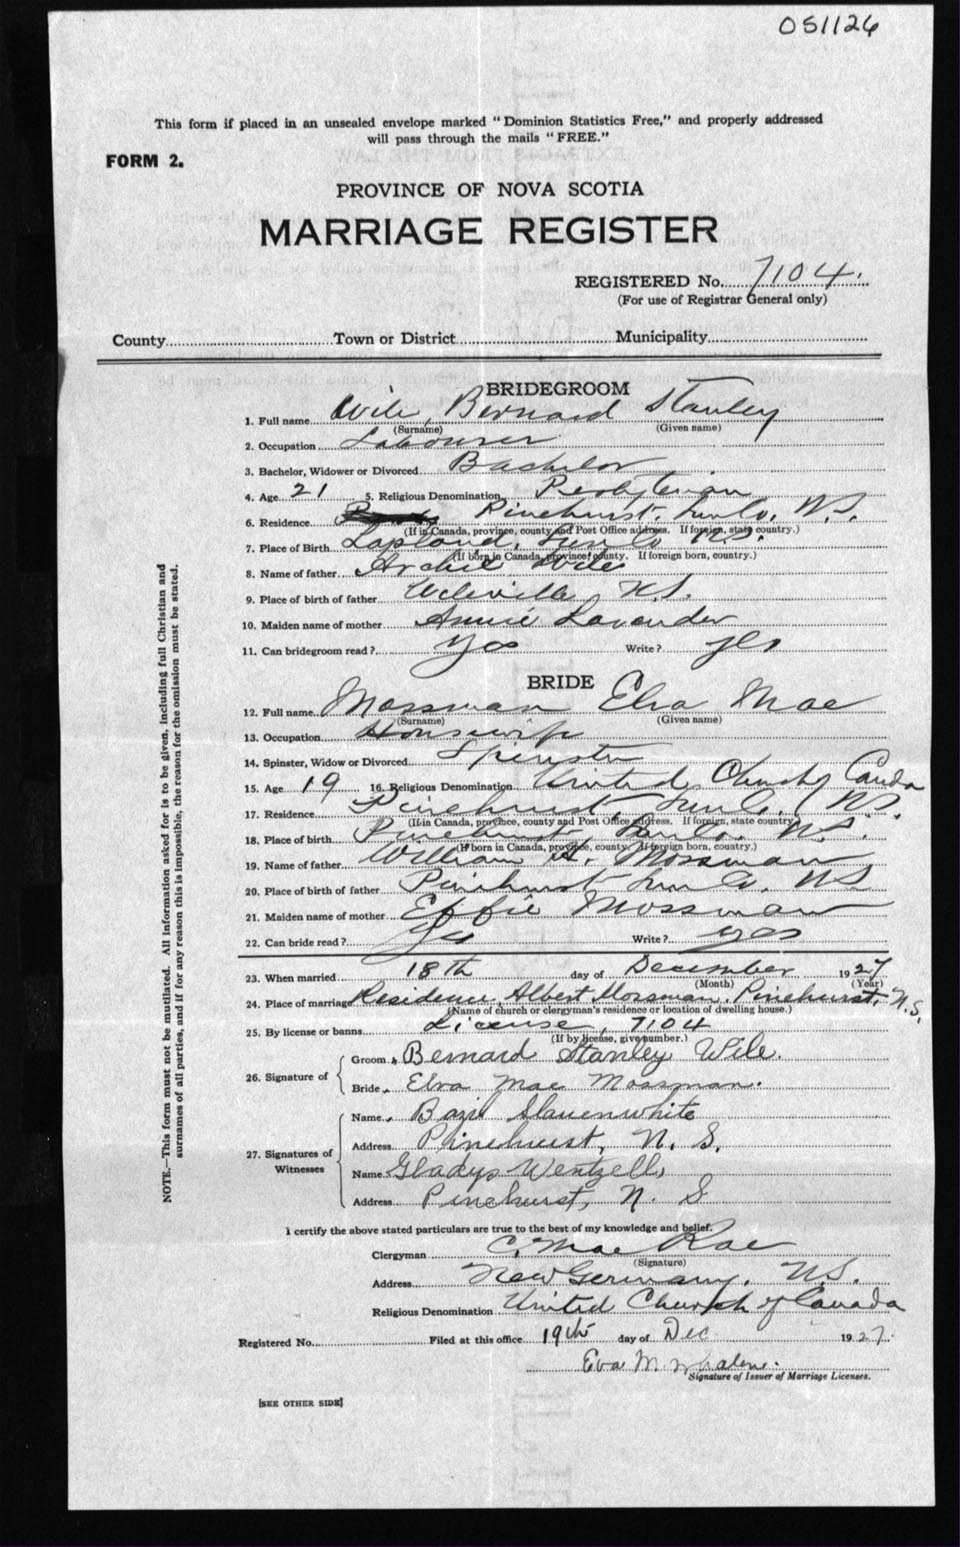 051126
This form if placed in an unsealed envelope marked "Dominion Statistics Free," and properly addressed
will pass through the mails "FREE."
FORM 2.
PROVINCE OF NOVA SCOTIA
MARRIAGE REGISTER
REGISTERED No. 7104.
(For use of Registrar General only)
County Town or District Municipality
BRIDEGROOM
1. Full name Wile, Bernard Stanley
(Surname) (Given name)
2. Occupation Labourer
3. Bachelor, Widower or Divorced Bachelor
4. Age 21 5. Religious Denomination Presbyterian
6. Residence Pinehurst, Lun Co, N.S.
(If in Canada, province, county and Post Office address. If foreign, state country.)
7. Place of Birth Lapland, Lun Co N.S.
(If born in Canada, province, county. If foreign born, country.)
8. Name of father Archie Wile
9. Place of birth of father Wileville, N.S.
10. Maiden name of mother Annie Lavender
11. Can bridegroom read? Yes Write? yes
BRIDE
12. Full name Mossman Elva Mae
(Surname) (Given name)
13. Occupation Housewife
14. Spinster, Widow or Divorced Spinster
15. Age 19 16. Religious Denomination United Church Canda
17. Residence Pinehurst Lun Co. N.S.
(If in Canada, province, county and Post Office address. If foreign, state country.)
18. Place of birth Pinehurst, Lun Co. N.S.
(If born in Canada, province, county. If foreign born, country.)
19. Name of father William A. Mossman
20. Place of birth of father Pinehurst Lun Co. N.S
21. Maiden name of mother Effie Mossman
22. Can bride read? Yes Write? yes
23. When married 18th day of December 1927
(Month) (Year)
24. Place of marriage Residence, Albert Mossman, Pinehurst, N.S.
(Name of church or clergyman's residence or location of dwelling house.)
25. By license or banns License, 7104
(If by license, give number.)
26. Signature of
Groom Bernard Stanley Wile.
Bride Elva Mae Mossman.
27. Signatures of Witnesses
Name Bazil Slauenwhite
Address Pinehurst, N. S.
Name Gladys Wentzell
Address Pinehurst, N. S
I certify the above stated particulars are true to the best of my knowledge and belief.
Clergyman C. MacRae
(Signature)
Address New Germany, N.S.
Religious Denomination United Church of Canada
Registered No. Filed at this office 19th day of Dec 1927.
Eva M. Whalen.
Signature of Issuer of Marriage Licenses.
[SEE OTHER SIDE]
NOTE.—This form must not be mutilated. All information asked for is to be given, including full Christian and
surnames of all parties, and if for any reason this is impossible, the reason for the omission must be stated.